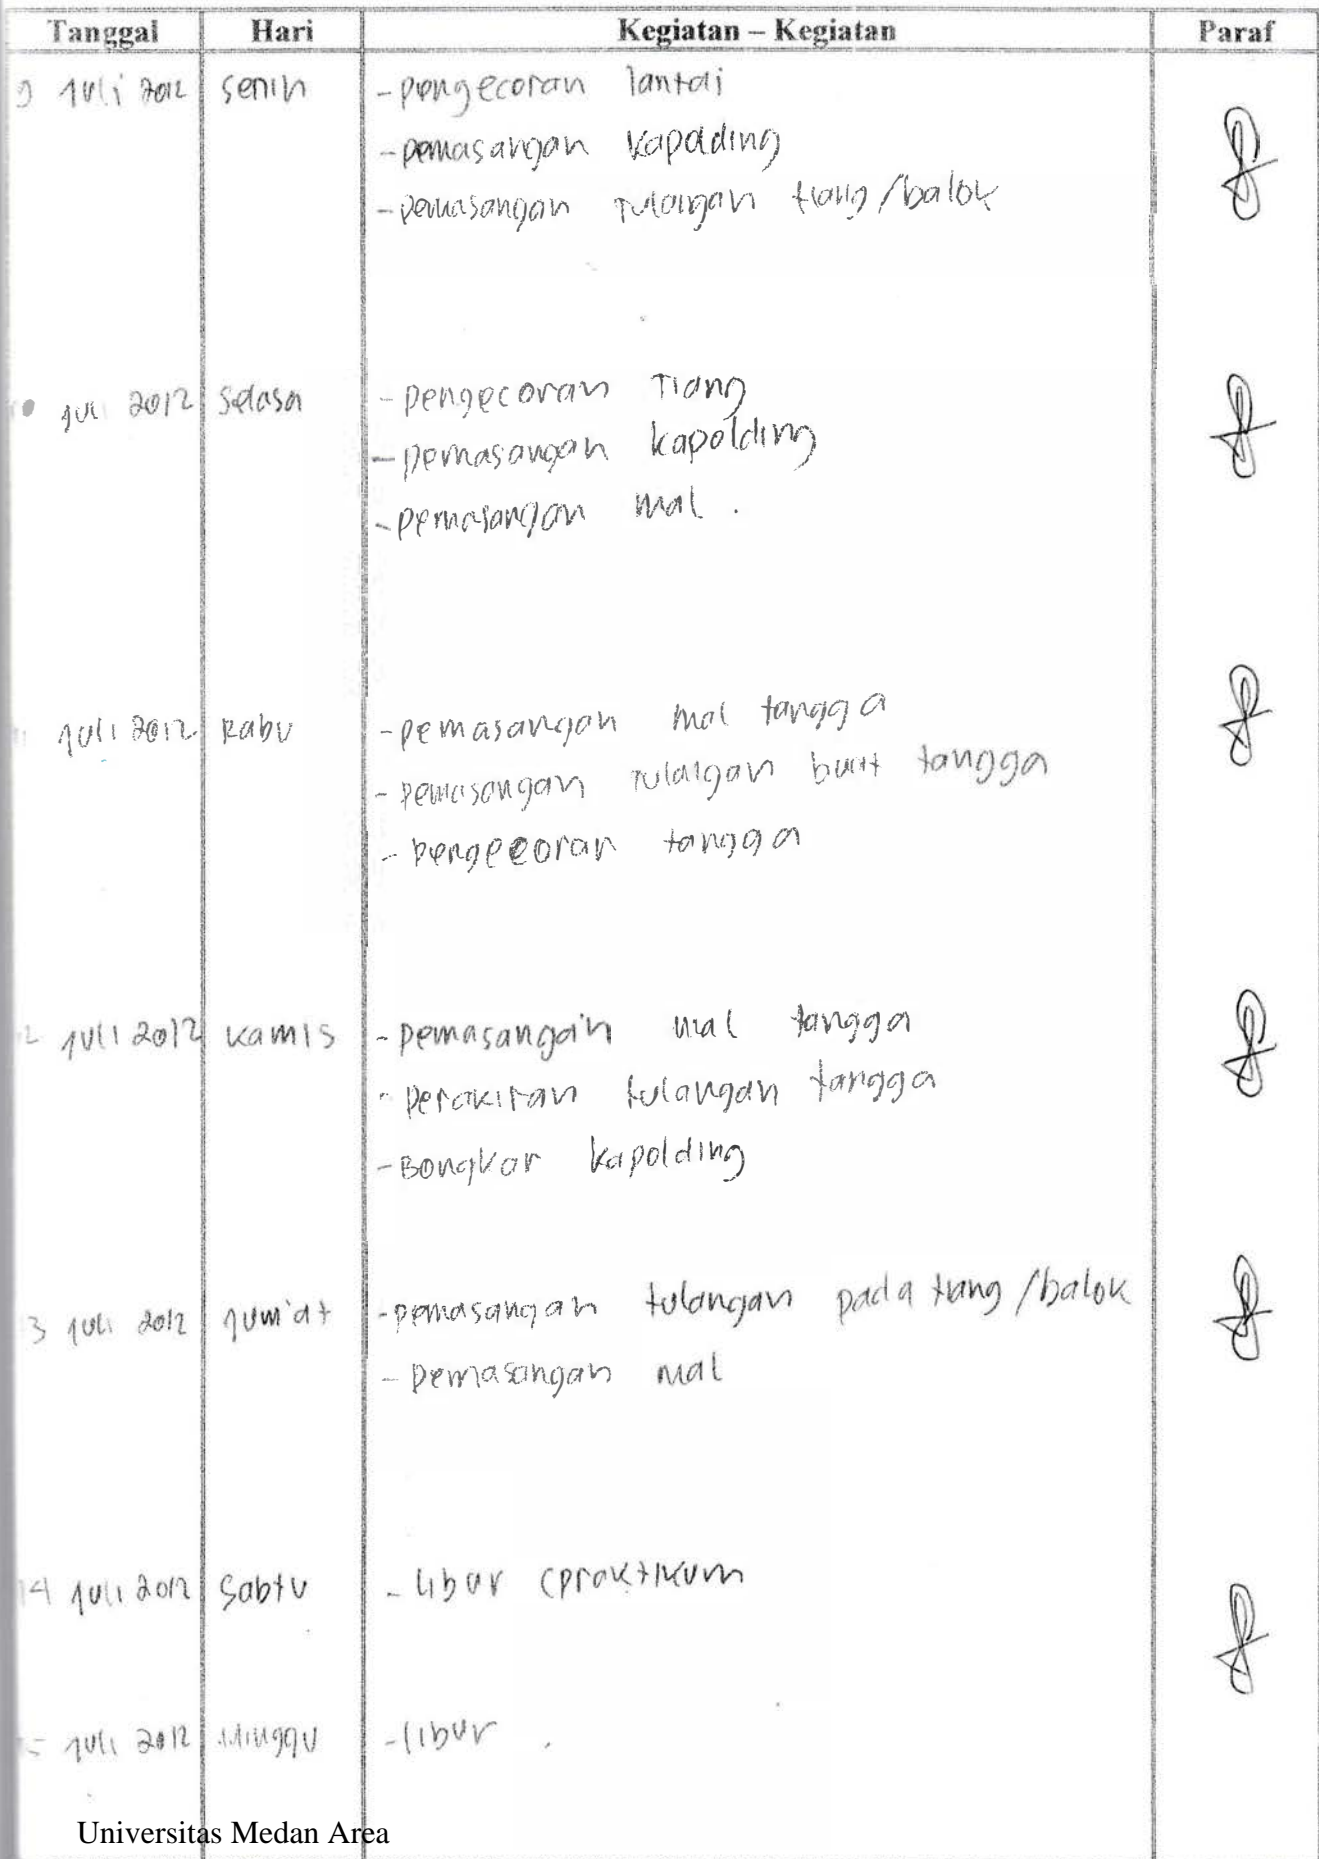 Tanggal Hari Kegiatan – Kegiatan Paraf
9 Juli 2012 Senin - pengecoran lantai
- pemasangan kapolding
- pemasangan tulangan tiang/balok
Juli 2012 Selasa - pengecoran Tiang
- pemasangan kapolding
- pemasangan mal .
Juli 2012 Rabu - pemasangan mal tangga
- pemasangan tulangan buat tangga
- pengecoran tangga
2 Juli 2012 Kamis - pemasangan mal tangga
- perakitan tulangan tangga
- Bongkar kapolding
3 Juli 2012 Jum'at - pemasangan tulangan pada tiang /balok
- pemasangan mal
14 Juli 2012 Sabtu - libur (praktikum
5 Juli 2012 Minggu - libur .
Universitas Medan Area